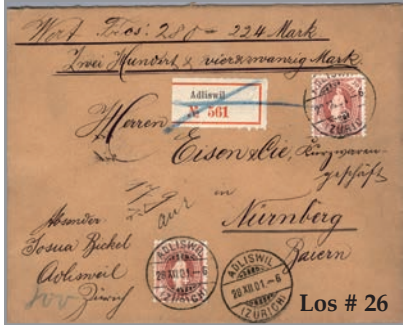 Wert Frcs: 280 - 224 Mark
Zwei Hundert & vierzwanzig Mark.
Adliswil
№ 561
ADLISWIL
(ZÜRICH)
Herren
Eisen & Cie, Kurzwaren-
geschäft
in
Nürnberg
Baiern
Absender
Josua Bickel
Adlisweil
Zürich
ADLISWIL
28 XII.01.-6
(ZÜRICH)
ADLISWIL
28 XII.01.-6
(ZÜRICH)
Los # 26